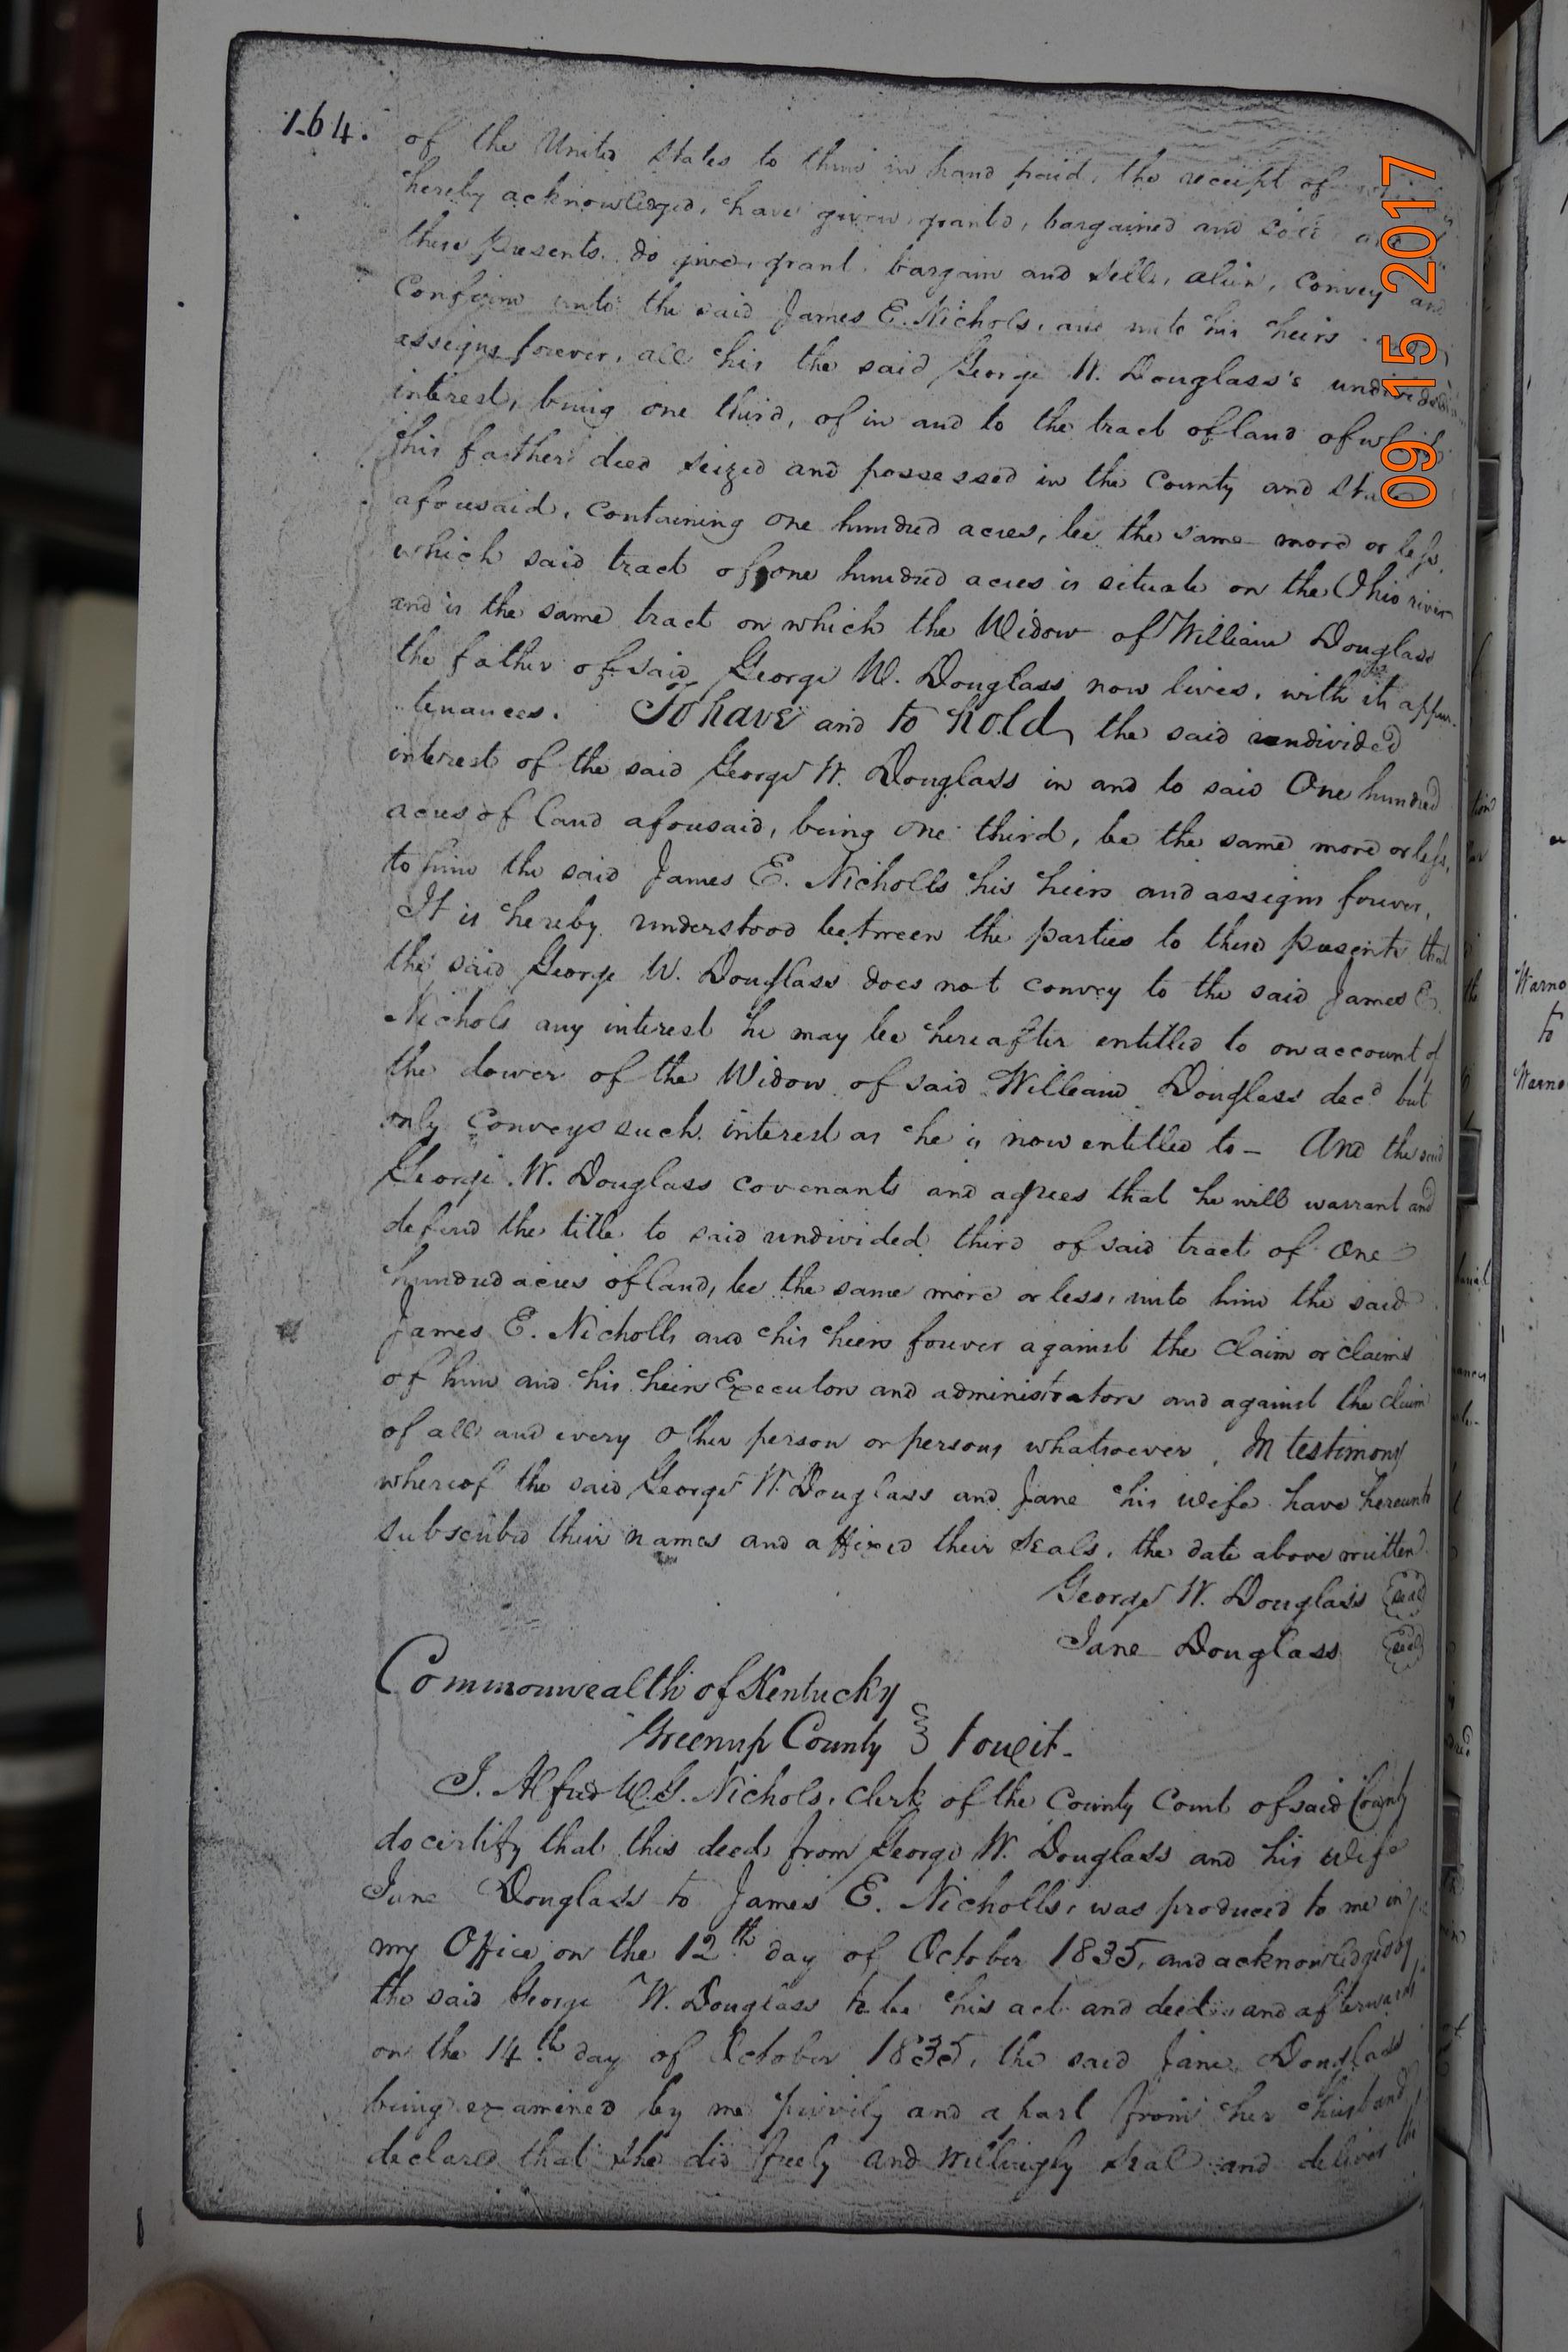 164.
of the United States to them in hand paid, the receipt of
hereby acknowledged, have given, granted, bargained and sold and
these presents do give, grant, bargain and sell, alien, convey and
Confirm unto the said James E. Nichols, and unto his heirs
assigns forever, all his the said George W. Douglass's undivided
interest, being one third, of in and to the tract of land of which
his farther died seized and possessed in the County and State
aforesaid, containing one hundred acres, be the same more or less,
which said tract of one hundred acres is situate on the Ohio river
and is the same tract on which the Widow of William Douglass
the father of said George W. Douglass now lives, with its appur-
tenances. To have and to hold, the said undivided
interest of the said George W. Douglass in and to said One hundred
acres of land aforesaid, being one third, be the same more or less,
to him the said James E. Nicholls his heirs and assigns forever,
It is hereby understood between the parties to these presents that
the said George W. Douglass does not convey to the said James E.
Nichols any interest he may be hereafter entitled to on account of
the dower of the Widow of said William Douglass decd but
only conveys such interest as he is now entitled to - And the said
George W. Douglass covenants and agrees that he will warrant and
defend the title to said undivided third of said tract of One
hundred acres of land, be the same more or less, unto him the said
James E. Nicholls and his heirs forever against the claim or claims
of him and his heirs Executors and administrators and against the claim
of all and every other person or persons whatsoever, In testimony
whereof the said George W. Douglass and Jane his wife have hereunto
subscribed their names and affixed their seals, the date above written.
George W. Douglass Seal
Jane Douglass Seal
Commonwealth of Kentucky
Greenup County towit-
I, Alfred W. G. Nichols, Clerk of the County Court of said County
do certify that this deed from George W. Douglass and his wife
Jane Douglass to James E. Nicholls, was produced to me in
my Office on the 12th day of October 1835, and acknowledged by
the said George W. Douglass to be his act and deed, and afterwards
on the 14th day of October 1835, the said Jane Douglass
being examined by me privily and apart from her husband
declared that she did freely and willingly seal and deliver the
09 15 2017
Warno
to
Warno